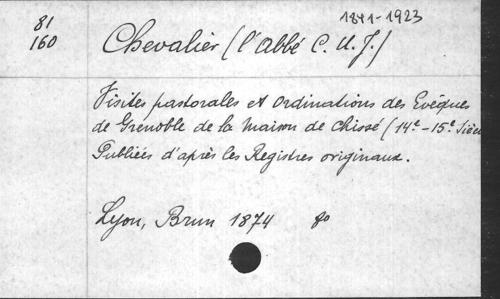 81
160
1841-1923
Chevalier (l'abbé C. U. J.)
Visites pastorales et ordinations des Evêques
de Grenoble de la maison de Chissé (14e-15e Sièc
Publiées d'après les Registres originaux.
Lyon, Brun 1874 8o